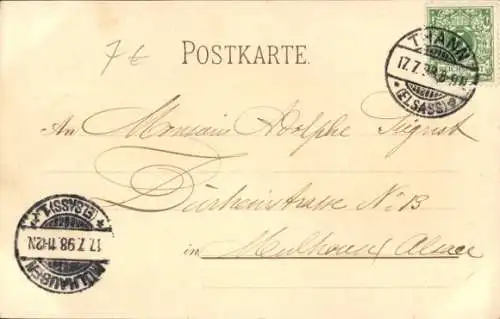 7 €
POSTKARTE.
THANN
17.7.98. 8-9N
* (ELSASS) *
An Monsieur Adolphe Sigrist
Dürkeinstrasse No 13
in Mulhouse Alsace
MÜLHAUSEN
17.7.98.11-12N.
* (ELSASS) 1. *